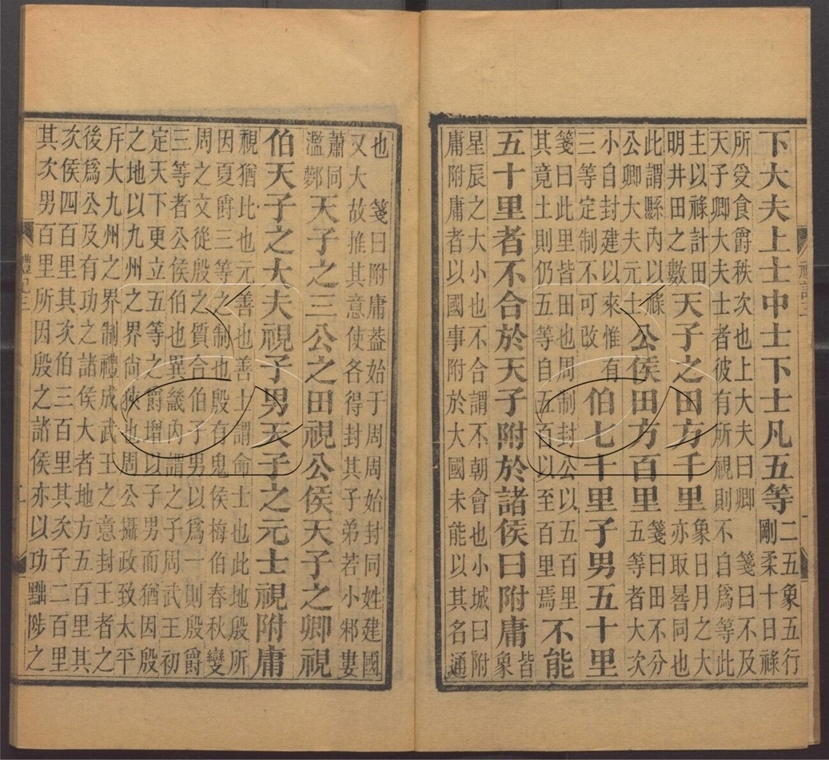 下大夫上士中士下士凡五等
二五象五行
剛柔十日祿
所受食爵秩次也上大夫曰卿　箋曰不及
天子卿大夫士者彼有所覜則不自爲等此
主以祿計田
明井田之數
天子之田方千里
象日月之大
亦取晷同也
此謂縣內以祿
公卿大夫元士
公侯田方百里
箋曰田不分
五等者大次
小自封建以來惟有
三等定制不可改
伯七十里子男五十里
箋曰此里皆田也周制封公以五百里
其竟土則仍五等自五百以至百里焉
不能
五十里者不合於天子附於諸侯曰附庸
皆
象
星辰之大小也不合謂不朝會也小城曰附
庸附庸者以國事附於大國未能以其名通
也　箋曰附庸葢始于周周始封同姓建國
又大故推其意使各得封其子弟若小邾婁
蕭同
濫鄸
天子之三公之田視公侯天子之卿視
伯天子之大夫視子男天子之元士視附庸
視猶比也元善也善士謂命士也此地殷所
因夏爵三等之制也殷有鬼侯梅伯春秋變
周之文從殷之質合伯子男以爲一則殷爵
三等者公侯伯也異畿內謂之子周武王初
定天下更立五等之爵增以子男而猶因殷
之地以九州之界尚狹也周公攝政致太平
斥大九州之界制禮成武王之意封王者之
後爲公及有功之諸侯大者地方五百里其
次侯四百里其次伯三百里其次子二百里
其次男百里所因殷之諸侯亦以功黜陟之